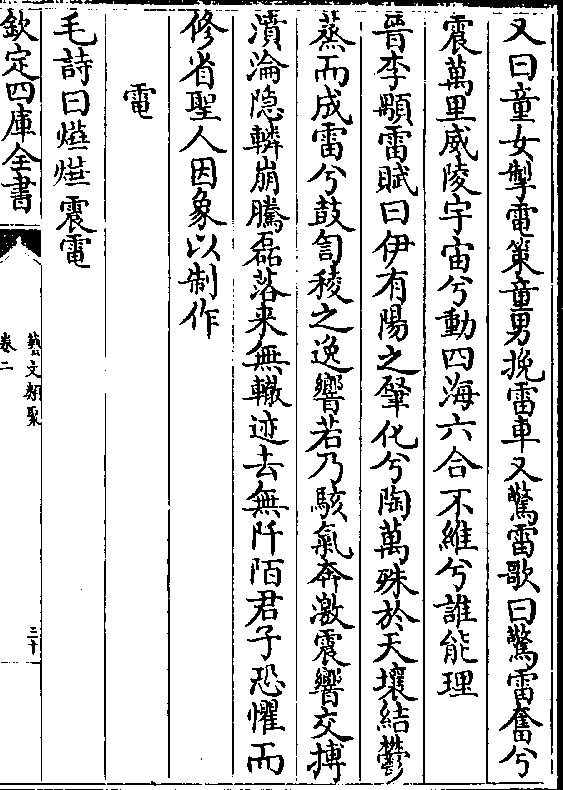 又曰童女掣電策童男挽雷車又驚雷歌曰驚雷奮兮
震萬里威陵宇宙兮動四海六合不維兮誰能理
晉李顒雷賦曰伊有陽之肇化兮陶萬殊於天壤結鬱
蒸而成雷兮鼓訇稜之逸響若乃駭氣奔激震響交搏
濆淪隐轔崩騰磊落来無轍迹去無阡陌君子恐懼而
修省聖人因象以制作
電
毛詩曰㷸㷸震電
欽定四庫全書
藝文類聚
卷二
三十